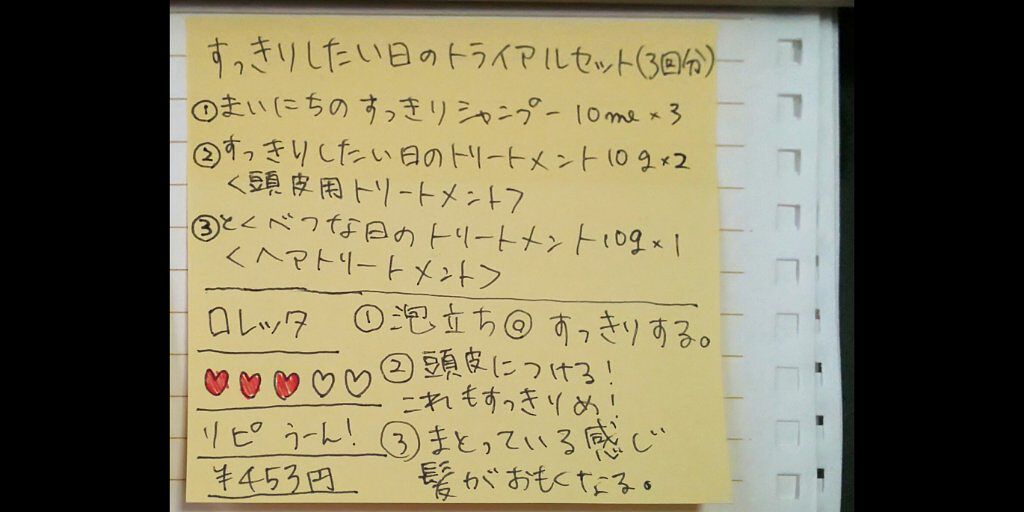 すっきりしたい日のトライアルセット(3回分)
①まいにちのすっきりシャンプー10ml×3
②すっきりしたい日のトリートメント10g×2
<頭皮用トリートメント>
③とくべつな日のトリートメント10g×1
<ヘアトリートメント>
ロレッタ
リピ うーん!
¥453円
①泡立ち◎ すっきりする。
②頭皮につける!
これもすっきりめ!
③まとっている感じ
髪がおもくなる。